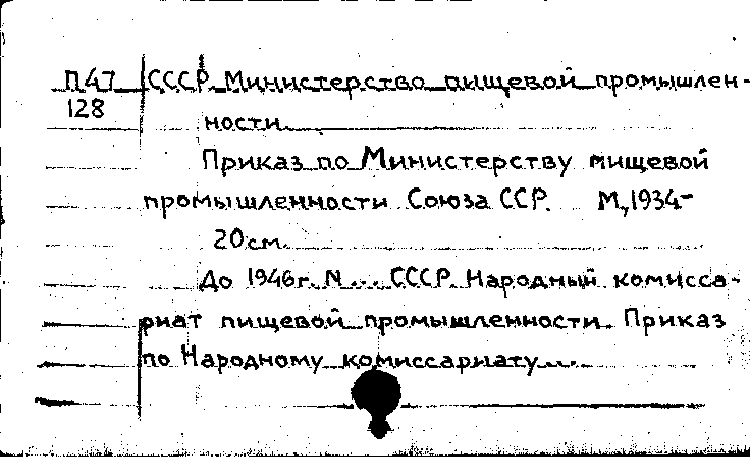 П47 СССР. Министерство пищевой промышлен-
128
ности.
Приказ по Министерству пищевой
промышленности Союза ССР. М., 1934-
20 см.
До 1946 г. N ... СССР. Народный комисса-
риат пищевой промышленности. Приказ
по Народному комиссариату ...